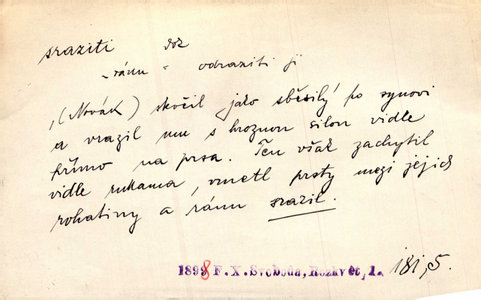 sraziti dok
„ránu" = odraziti ji
„(Novák) skočil jako sběsilý po synovi
a vrazil mu s hroznou silou vidle
přímo na prsa. Ten však zachytil
vidle rukama, vmetl prsty mezi jejich
rohatiny a ránu srazil.
1898 F. X. Svoboda, Rozkvět, I. 181,5.